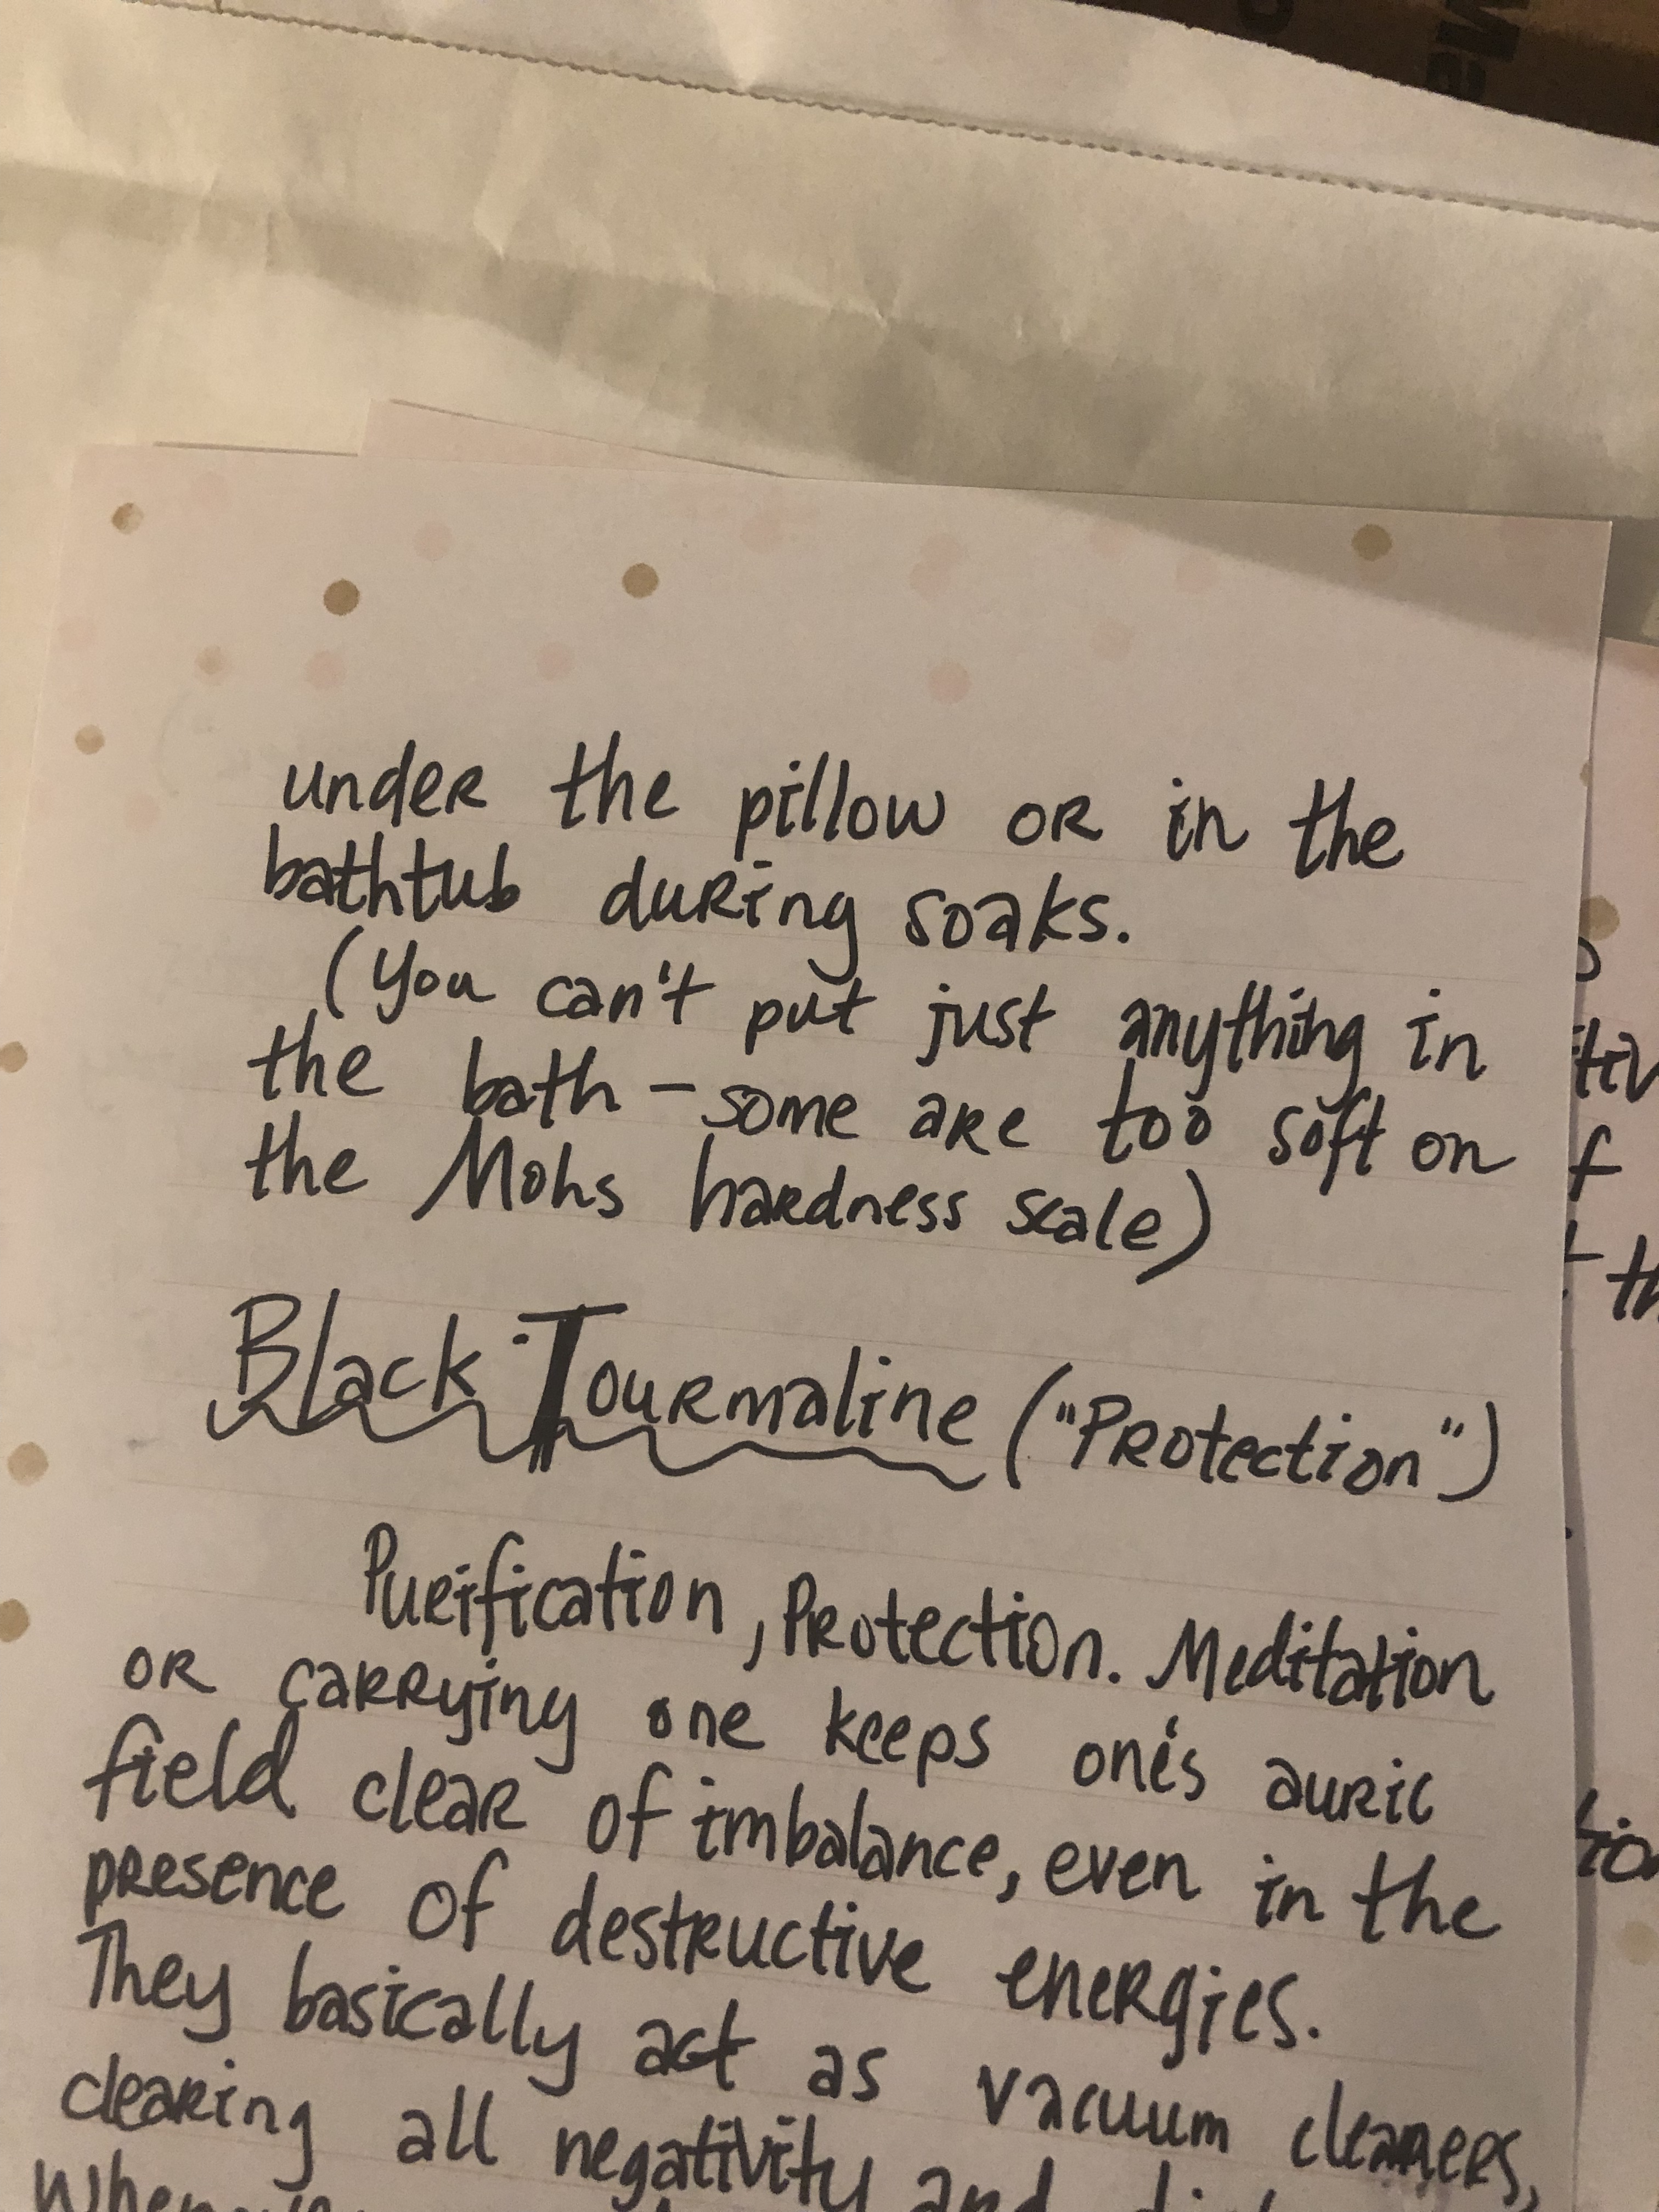 under the pillow or in the
bathtub during soaks.
(You can't put just anything in
the bath – some are too soft on
the Mohs hardness scale)
Black Tourmaline ("Protection")
Purification, Protection. Meditation
or carrying one keeps one's auric
field clear of imbalance, even in the
presence of destructive energies.
They basically act as vacuum cleaners,
clearing all negativity and